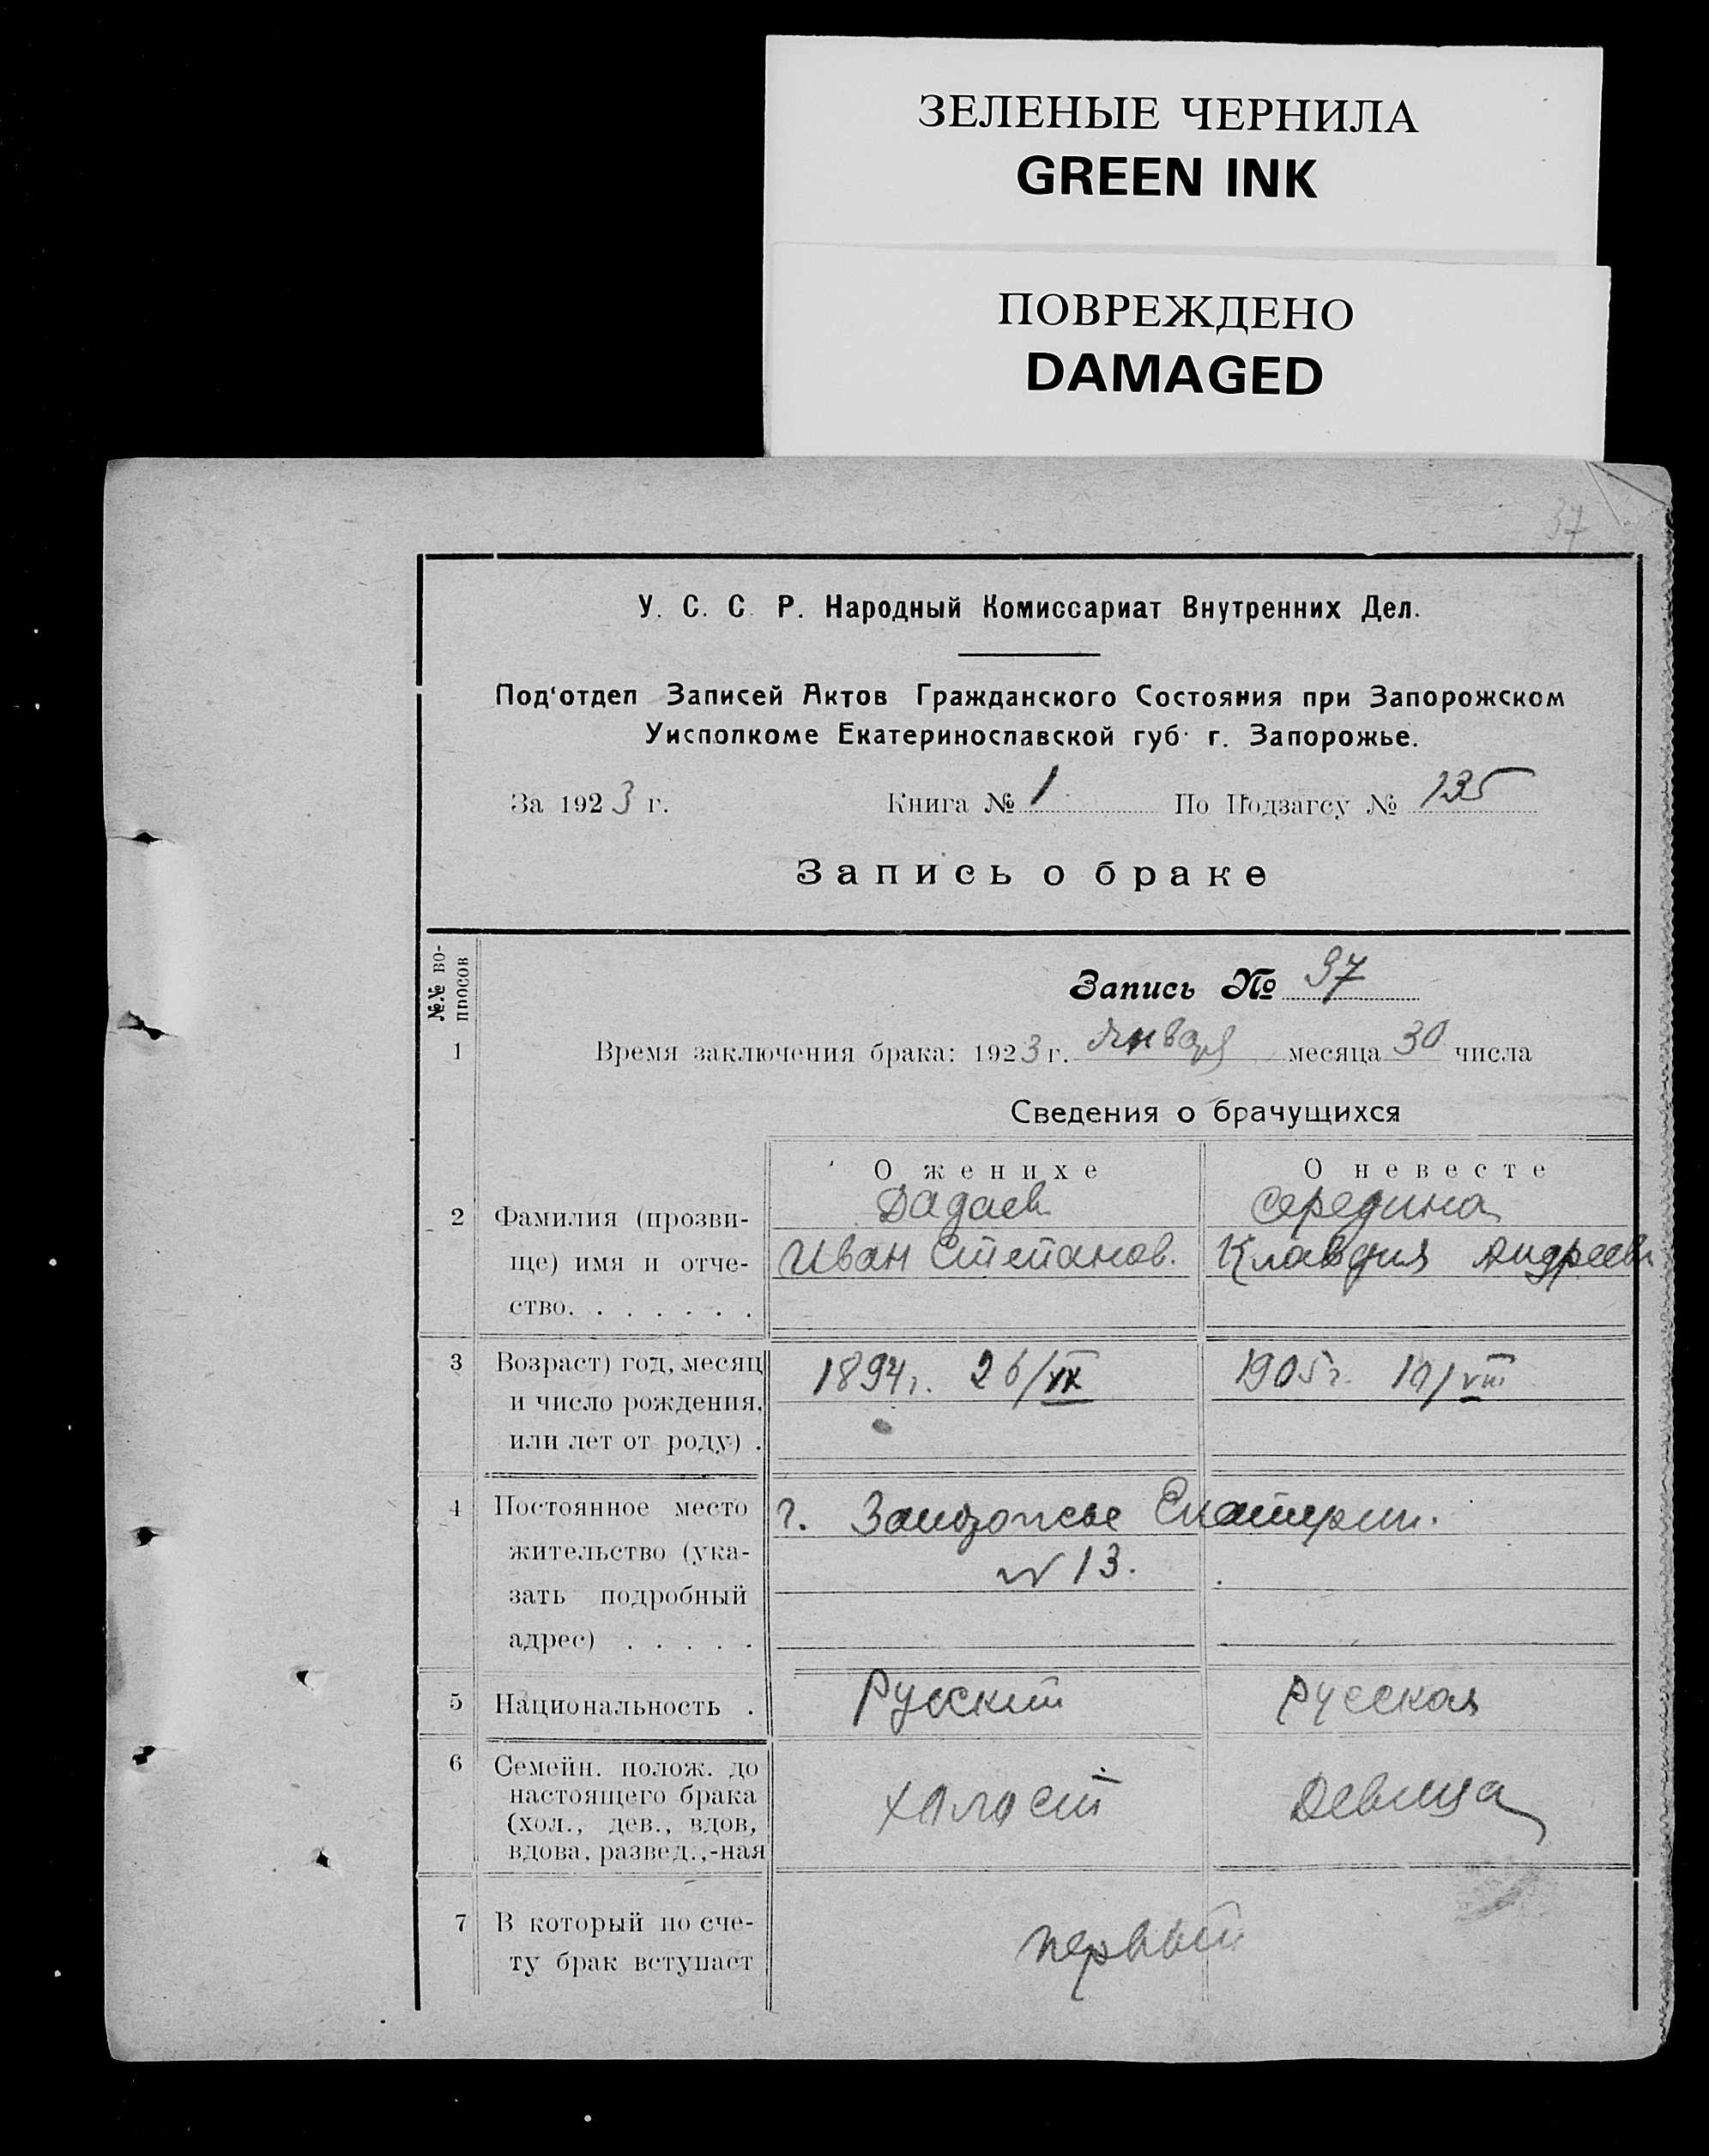 ЗЕЛЕНЫЕ ЧЕРНИЛА
GREEN INK
ПОВРЕЖДЕНО
DAMAGED
37
У. С. С Р. Народный Комиссариат Внутренних Дел.
Под‘отдел Записей Актов Гражданского Состояния при Запорожском
Уисполкоме Екатеринославской губ. г. Запорожье.
За 1923 г. Книга № 1 По Подзагсу № 135
Запись о браке
№№ во-
просов
Запись № 37
1 Время заключения брака: 1923 г. Января месяца 30 числа
Сведения о брачущихся
О женихе О невесте
Дадаев Середина
2 Фамилия (прозви-
ще) имя и отче- Иван Степанов. Клавдия Андреевн
ство. . . . . . .
3 Возраст) год, месяц 1894г. 26/IX 1905г. 10/VIII
и число рождения,
или лет от роду) .
4 Постоянное место г. Запорожье Екатерин.
жительство (ука- № 13.
зать подробный
адрес) . . . . .
5 Национальность . Русский Русская
6 Семейн. полож. до
настоящего брака холост Девица
(хол., дев., вдов,
вдова, развед.,-ная
7 В который по сче- первый
ту брак вступает